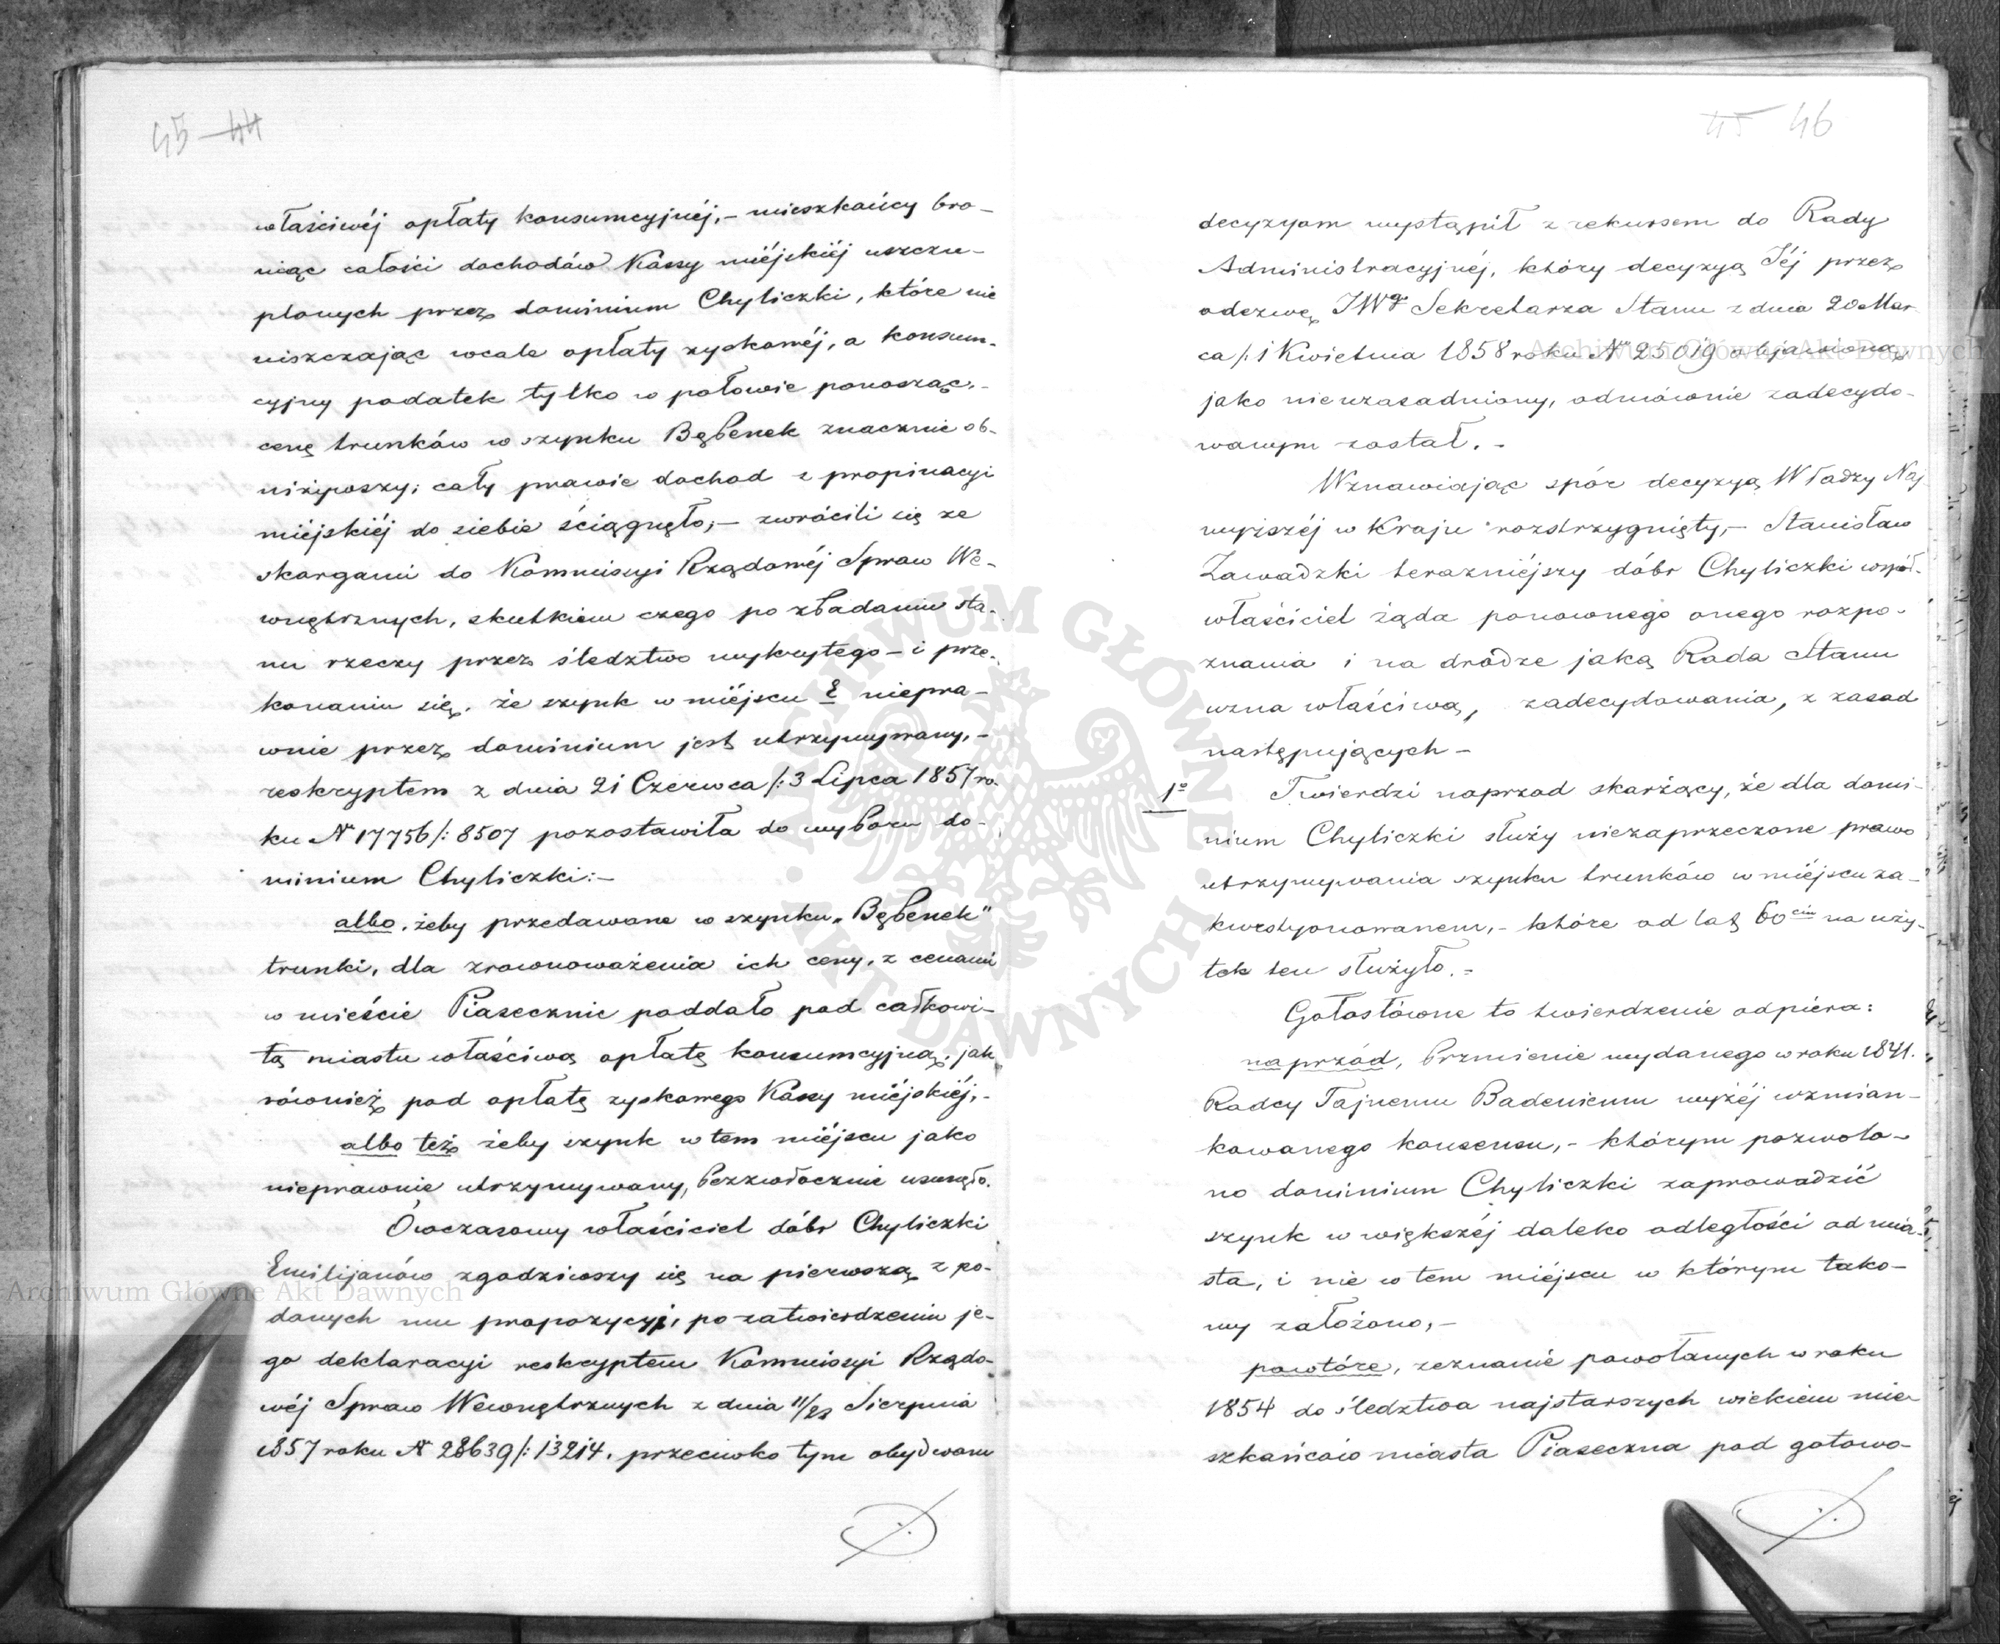 45 44
właściwéj opłaty konsumcyjnéj,– mieszkańcy bro-
niąc całości dochodów Kassy miéjskiéj uszczu-
plonych przez dominium Chyliczki, które nie
uiszczając wcale opłaty zyskowéj, a konsum-
cyjny podatek tylko w połowie ponosząc,–
cenę trunków w szynku Bębenek znacznie ob-
niżywszy; cały prawie dochod z propinacyi
miéjskiéj do siebie ściągnęło;– zwrócili się ze
skargami do Kommissyi Rządowéj Spraw We-
wnętrznych, skutkiem czego po zbadaniu sta-
nu rzeczy przez śledztwo wykrytego – i prze-
konaniu się, że szynk w miéjscu E niepra-
wnie przez dominium jest utrzymywany,–
reskryptem z dnia 21 Czerwca /: 3 Lipca 1857 ro-
ku Nr 17756/: 8507 pozostawiła do wyboru do-
minium Chyliczki:–
albo, żeby przedawane w szynku „Bębenek"
trunki, dla zrównoważenia ich ceny, z cenami
w mieście Piasecznie poddało pod całkowi-
tą miastu właściwą opłatę konsumcyjną, jak
również pod opłatę zyskowego Kassy miéjskiéj,–
albo też żeby szynk w tem miéjscu jako
nieprawnie utrzymywany, bezzwłocznie usunęło.
Ówczasowy właściciel dóbr Chyliczki
Emilijanów zgodziwszy się na pierwszą z po-
danych mu propozycyi, po zatwierdzeniu je-
go deklaracyi reskryptem Kommissyi Rządo-
wéj Spraw Wewnętrznych z dnia 11/23 Sierpnia
1857 roku Nr 28639/: 13214, przeciwko tym obydwom
45 46
decyzyom wystąpił z rekursem do Rady
Administracyjnéj, który decyzyą Jéj przez
odezwę JWgo Sekretarza Stanu z dnia 20 Mar-
ca /: 1 Kwietnia 1858 roku Nr 25019 objawioną
jako nieuzasadniony, odmównie zadecydo-
wanym został.–
Wznawiając spór decyzyą Władzy Naj-
wyższéj w Kraju rozstrzygnięty,– Stanisław
Zawadzki teraźniéjszy dóbr Chyliczki współ-
właściciel żąda ponownego onego rozpo-
znania i na drodze jaką Rada Stanu
uzna właściwą, zadecydowania, z zasad
następujących –
1o Twierdzi naprzod skarżący, że dla domi-
nium Chyliczki służy niezaprzeczone prawo
utrzymywania szynku trunków w miéjscu za-
kwestyonowanem,– które od lat 60ciu na uży-
tek ten służyło.–
Gołosłówne to twierdzenie odpiéra:
naprzód, brzmienie wydanego w roku 1841.
Radcy Tajnemu Badeniemu wyżéj wzmian-
kowanego konsensu,– którym pozwolo-
no dominium Chyliczki zaprowadzić
szynk w większéj daleko odległości od mia-
sta, i nie w tem miéjscu w którym tako-
wy założono,–
powtóre, zeznanie powołanych w roku
1854 do śledztwa najstarszych wiekiem mie-
szkańców miasta Piaseczna pod gotowo-
Archiwum Główne Akt Dawnych
Archiwum Główne Akt Dawnych
ARCHIWUM GŁÓWNE AKT DAWNYCH